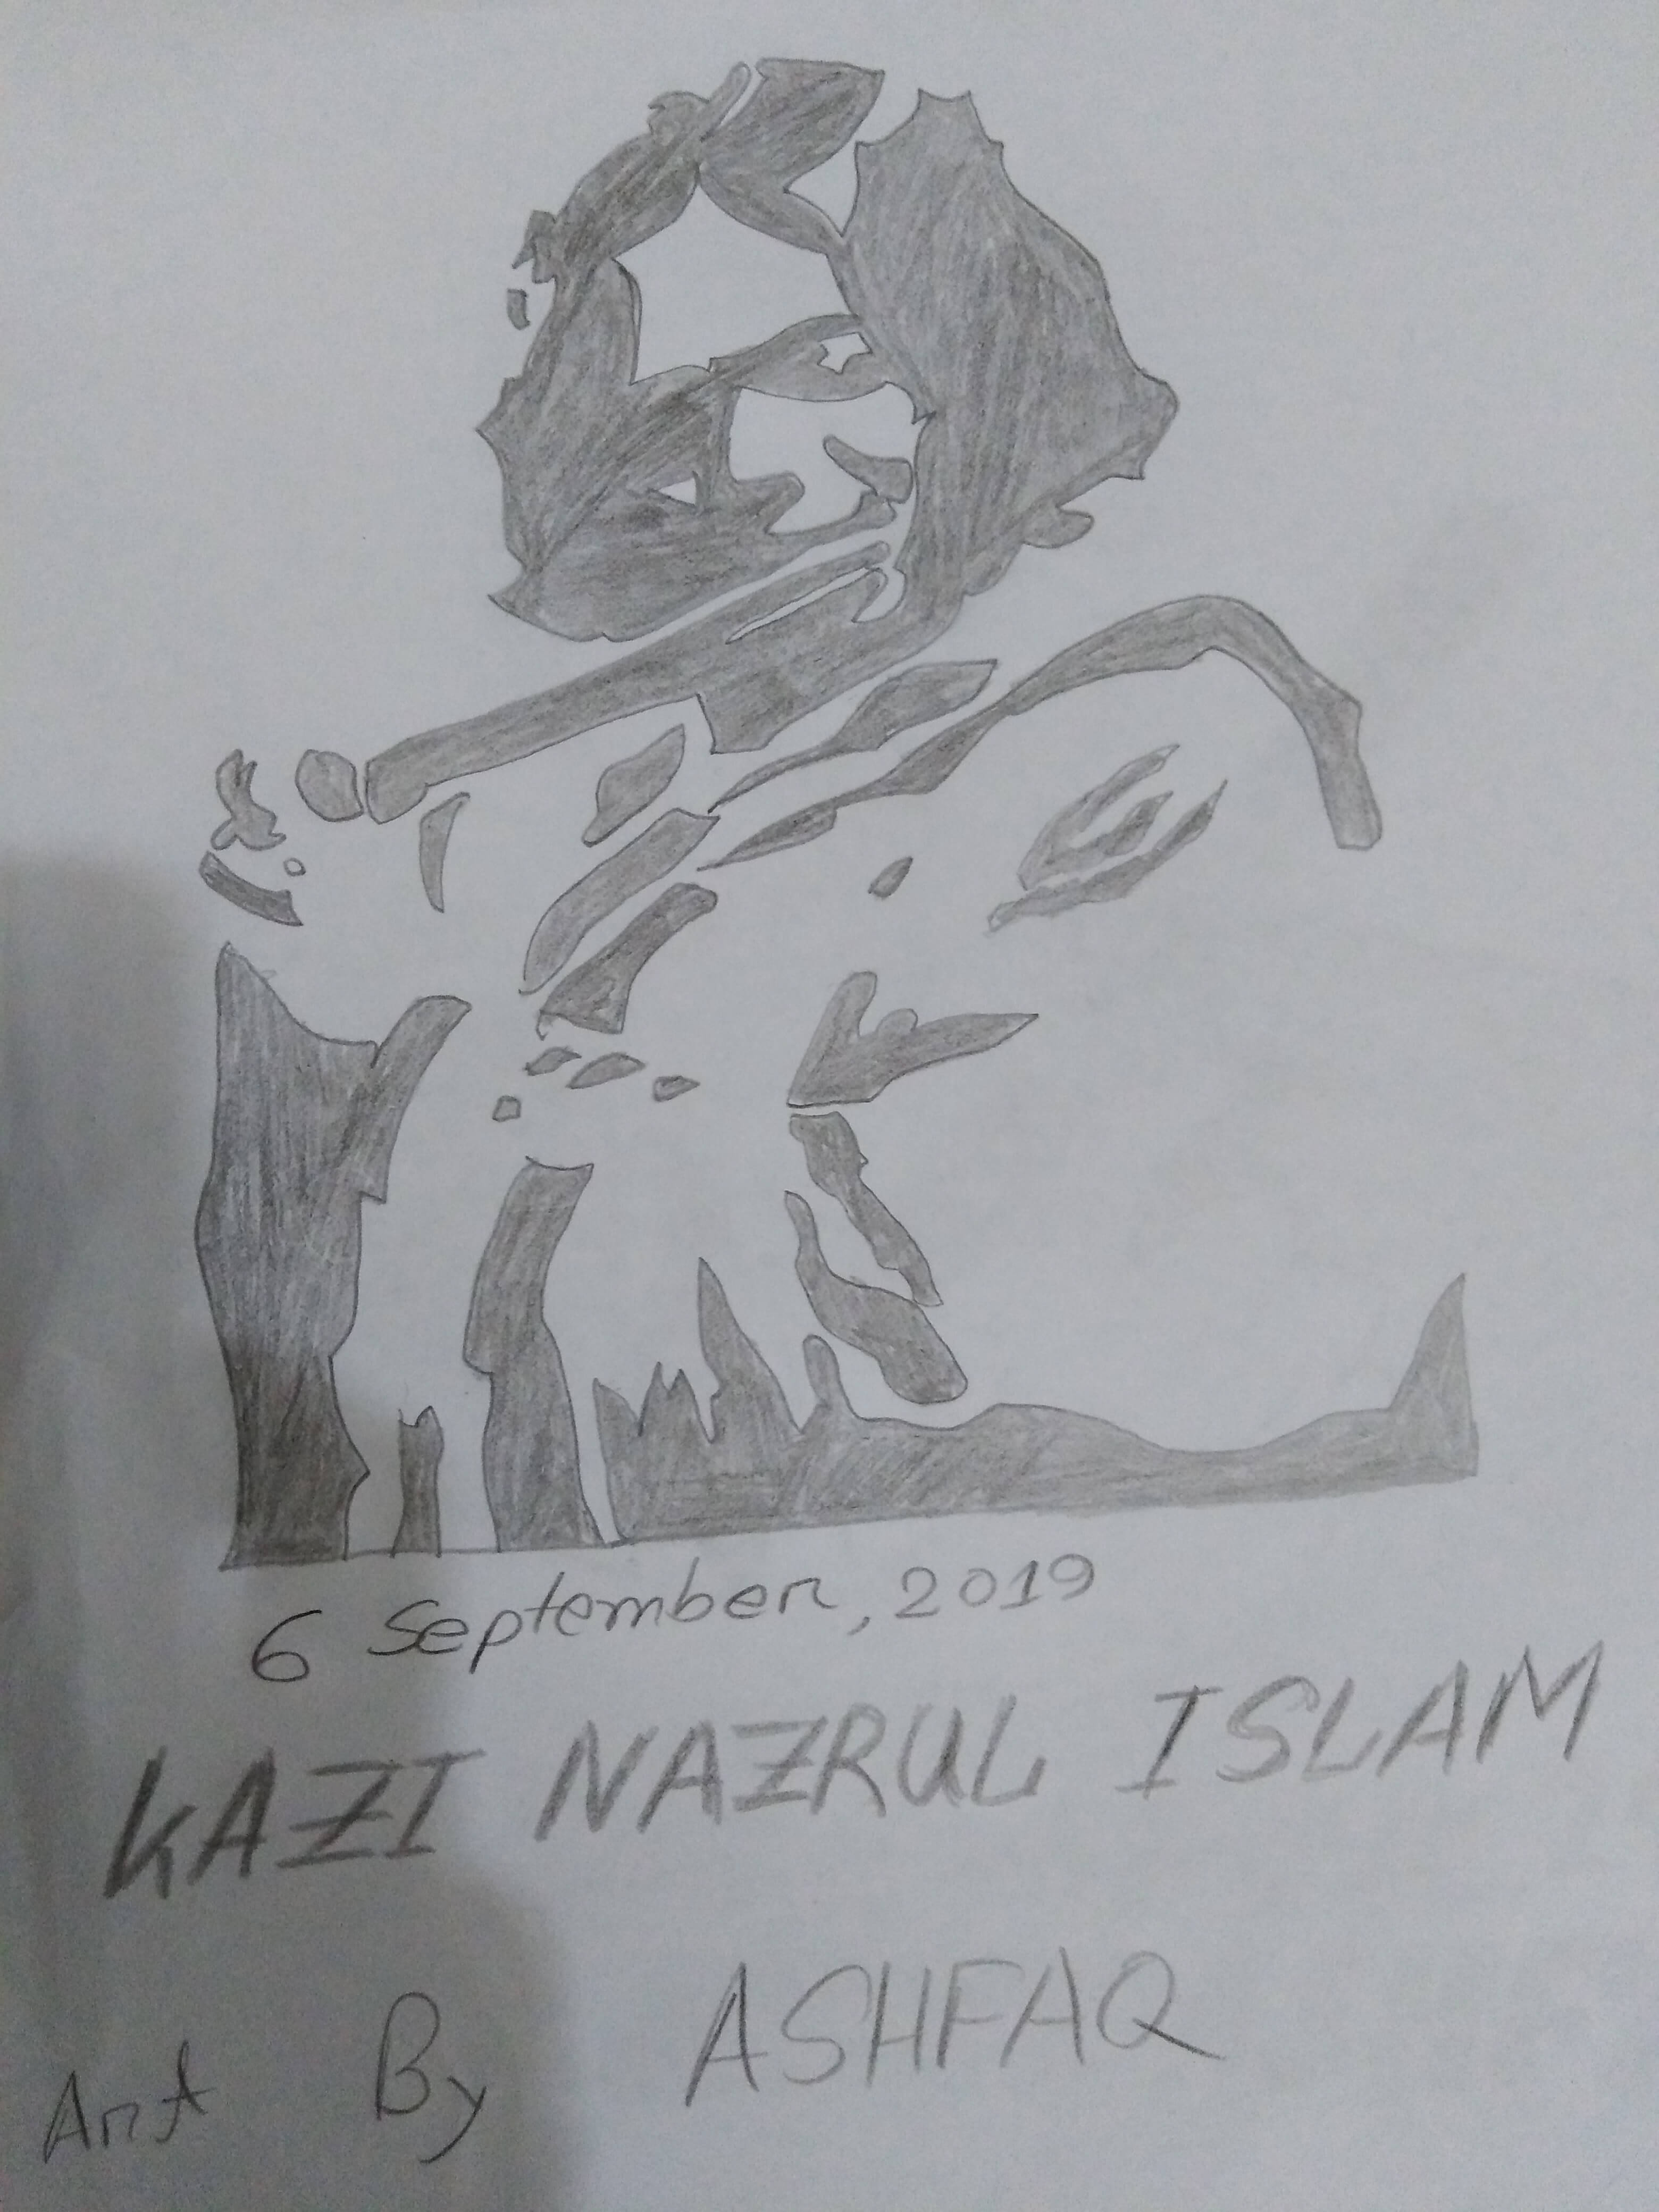 6 September, 2019
KAZI NAZRUL ISLAM
Art By ASHFAQ